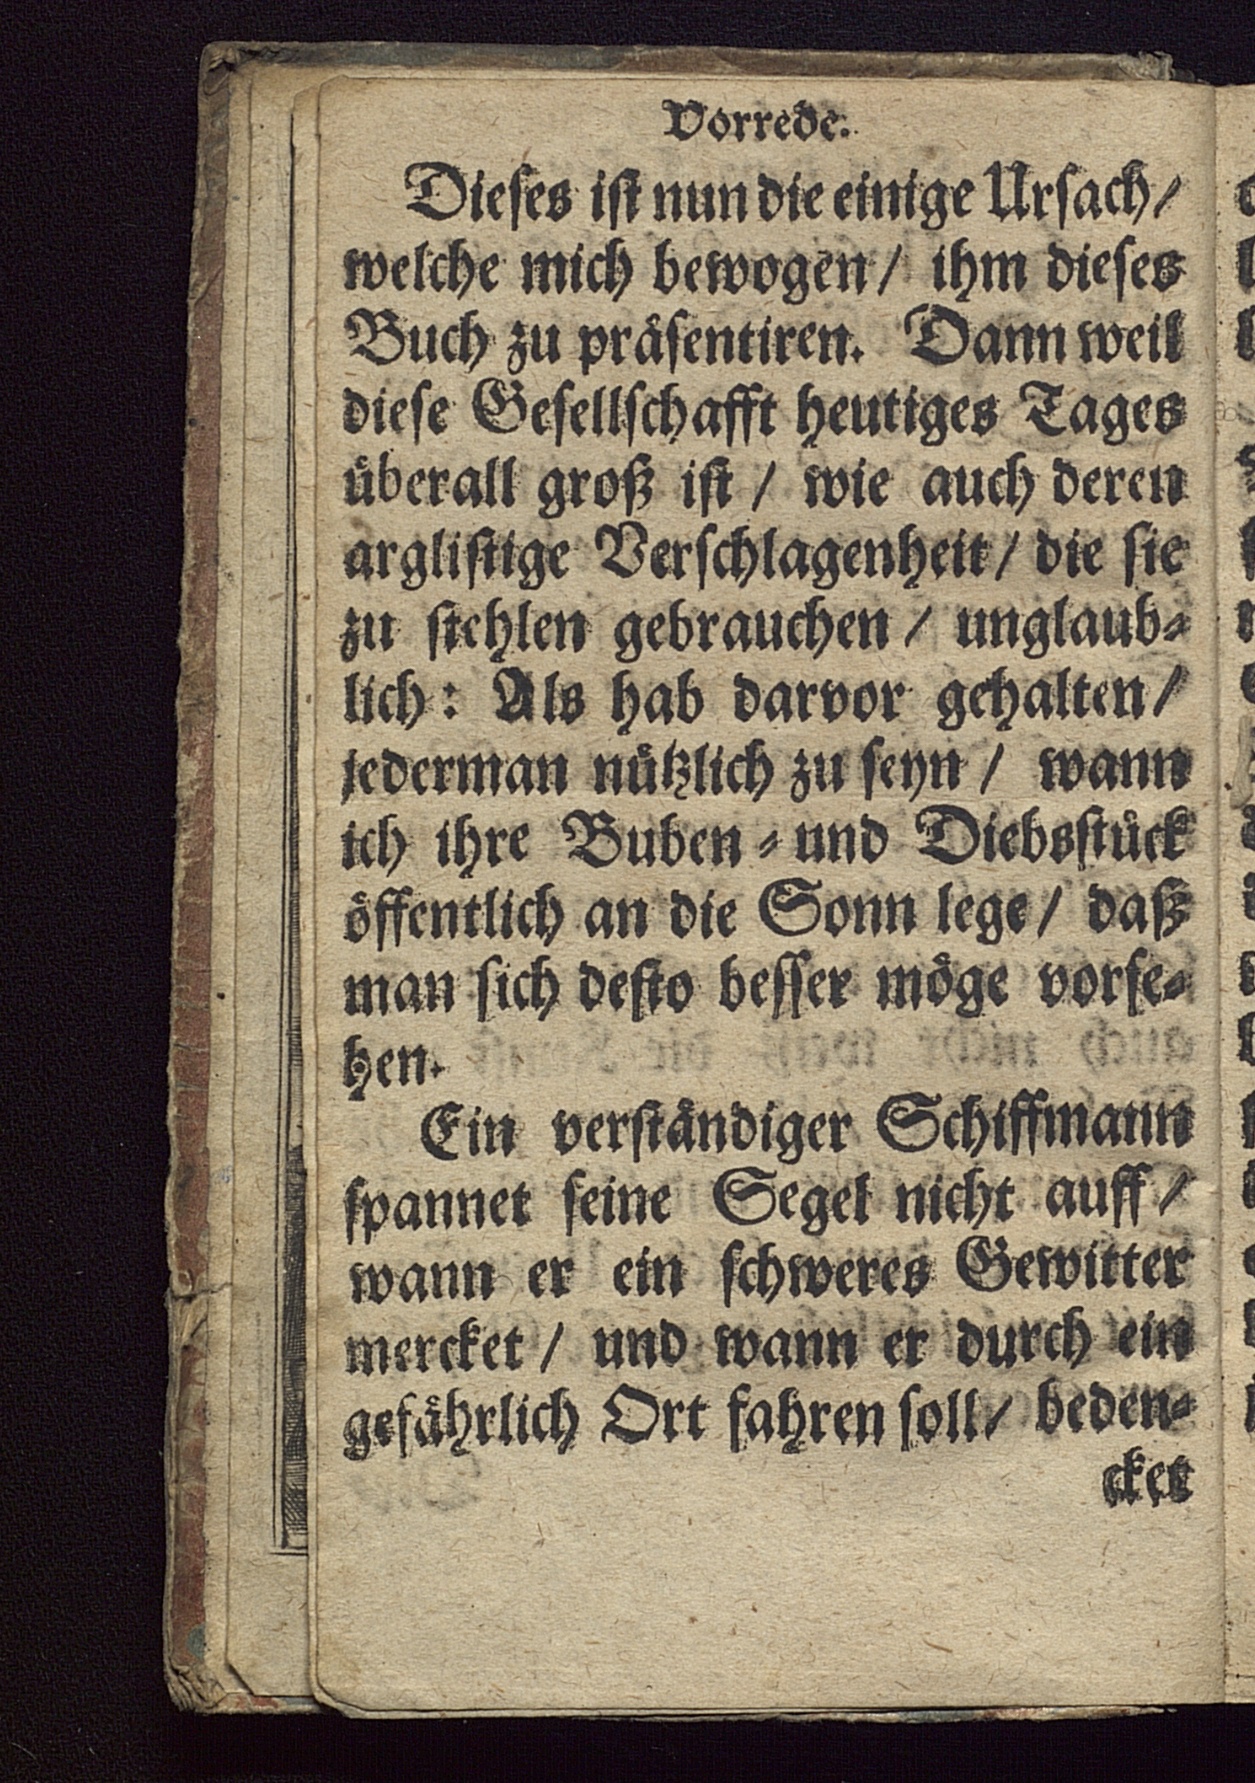 Vorrede.
Dieſes iſt nun die einige Urſach/
welche mich bewogen/ ihm dieſes
Buch zu präſentiren. Dann weil
dieſe Geſellſchafft heutiges Tages
überall groß iſt / wie auch deren
argliſtige Verſchlagenheit/ die ſie
zu ſtehlen gebrauchen / unglaub⸗
lich: Als hab darvor gehalten/
jederman nützlich zu ſeyn / wann
ich ihre Buben⸗und Diebsſtück
öffentlich an die Sonn lege/ daß
man ſich deſto beſſer möge vorſe⸗
hen.
Ein verſtändiger Schiffmann
ſpannet ſeine Segel nicht auff/
wann er ein ſchweres Gewitter
mercket / und wann er durch ein
gefährlich Ort fahren ſoll/ beden⸗
cket